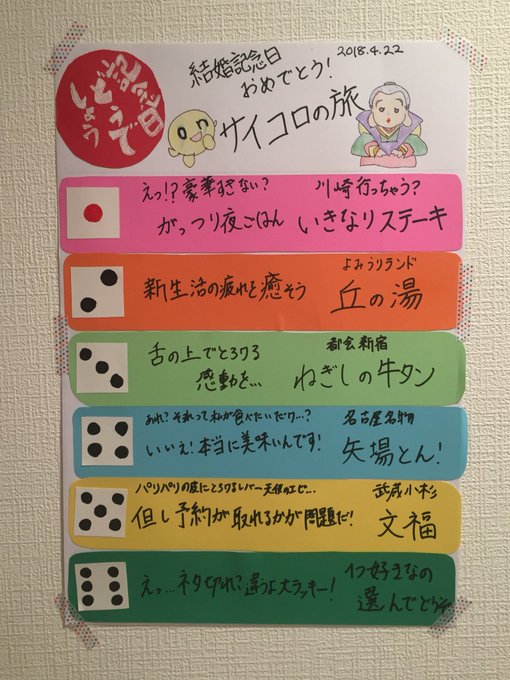 記念日
どうで
しょう
結婚記念日
おめでとう!
2018.4.22
サイコロの旅
えっ!?豪華すぎない?
川崎行っちゃう?
がっつり夜ごはん
いきなりステーキ
新生活の疲れを癒そう
よみうりランド
丘の湯
舌の上でとろける
感動を…
都会新宿
ねぎしの牛タン
あれ?それって私が食べたいだけ…?
いいえ!本当に美味いんです!
名古屋名物
矢場とん!
パリパリの皮にとろけるレバー天使のエビ…
但し予約が取れるかが問題だ!
武蔵小杉
文福
えっ…ネタ切れ?違うよ大ラッキー!
1つ好きなの
選んでどうぞ